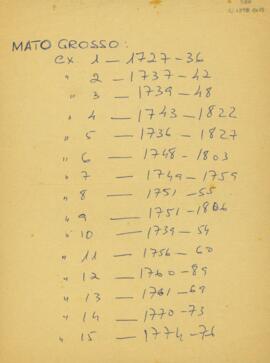 MATO GROSSO:
CX 1 — 1727-36
" 2 — 1737-42
" 3 — 1739-48
" 4 — 1743-1822
" 5 — 1736-1827
" 6 — 1748-1803
" 7 — 1749-1759
" 8 — 1751-55
" 9 — 1751-1806
" 10 — 1739-54
" 11 — 1756-60
" 12 — 1760-89
" 13 — 1761-69
" 14 — 1770-73
" 15 — 1774-76